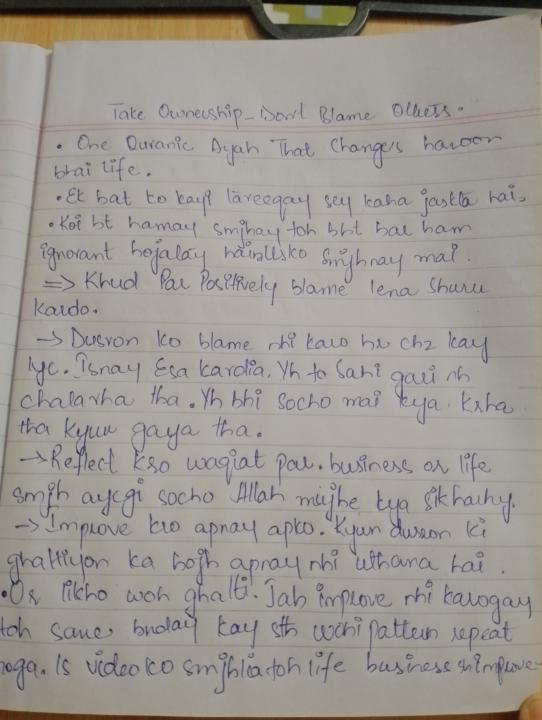 Take Ownership - Dont Blame Others.
• One Quranic Ayah That Changes haroon
bhai life.
• Ek bat ko kayi tareeqay sey kaha jaskta hai.
• Koi bt hamay smjhay toh bht bar ham
ignorant hojatay hain Usko smjhnay mai.
=> Khud Par Positively blame lena Shuru
kardo.
→ Dusron ko blame nhi karo hr chz kay
lye. Isnay Esa kardia. Yh to Sahi gari nh
chalarha tha. Yh bhi socho mai kya. krha
tha kyun gaya tha.
→ Reflect kro waqiat par. business or life
smjh ayegi socho Allah mujhe kya sikharhy.
→ Improve kro apnay apko. Kyun dusron ki
ghaltiyon ka bojh apnay nhi uthana hai.
• Or likho woh ghalti. Jab improve nhi karogay
toh same bnday kay sth wohi pattern repeat
hoga. Is video ko smjhlia toh life business improve